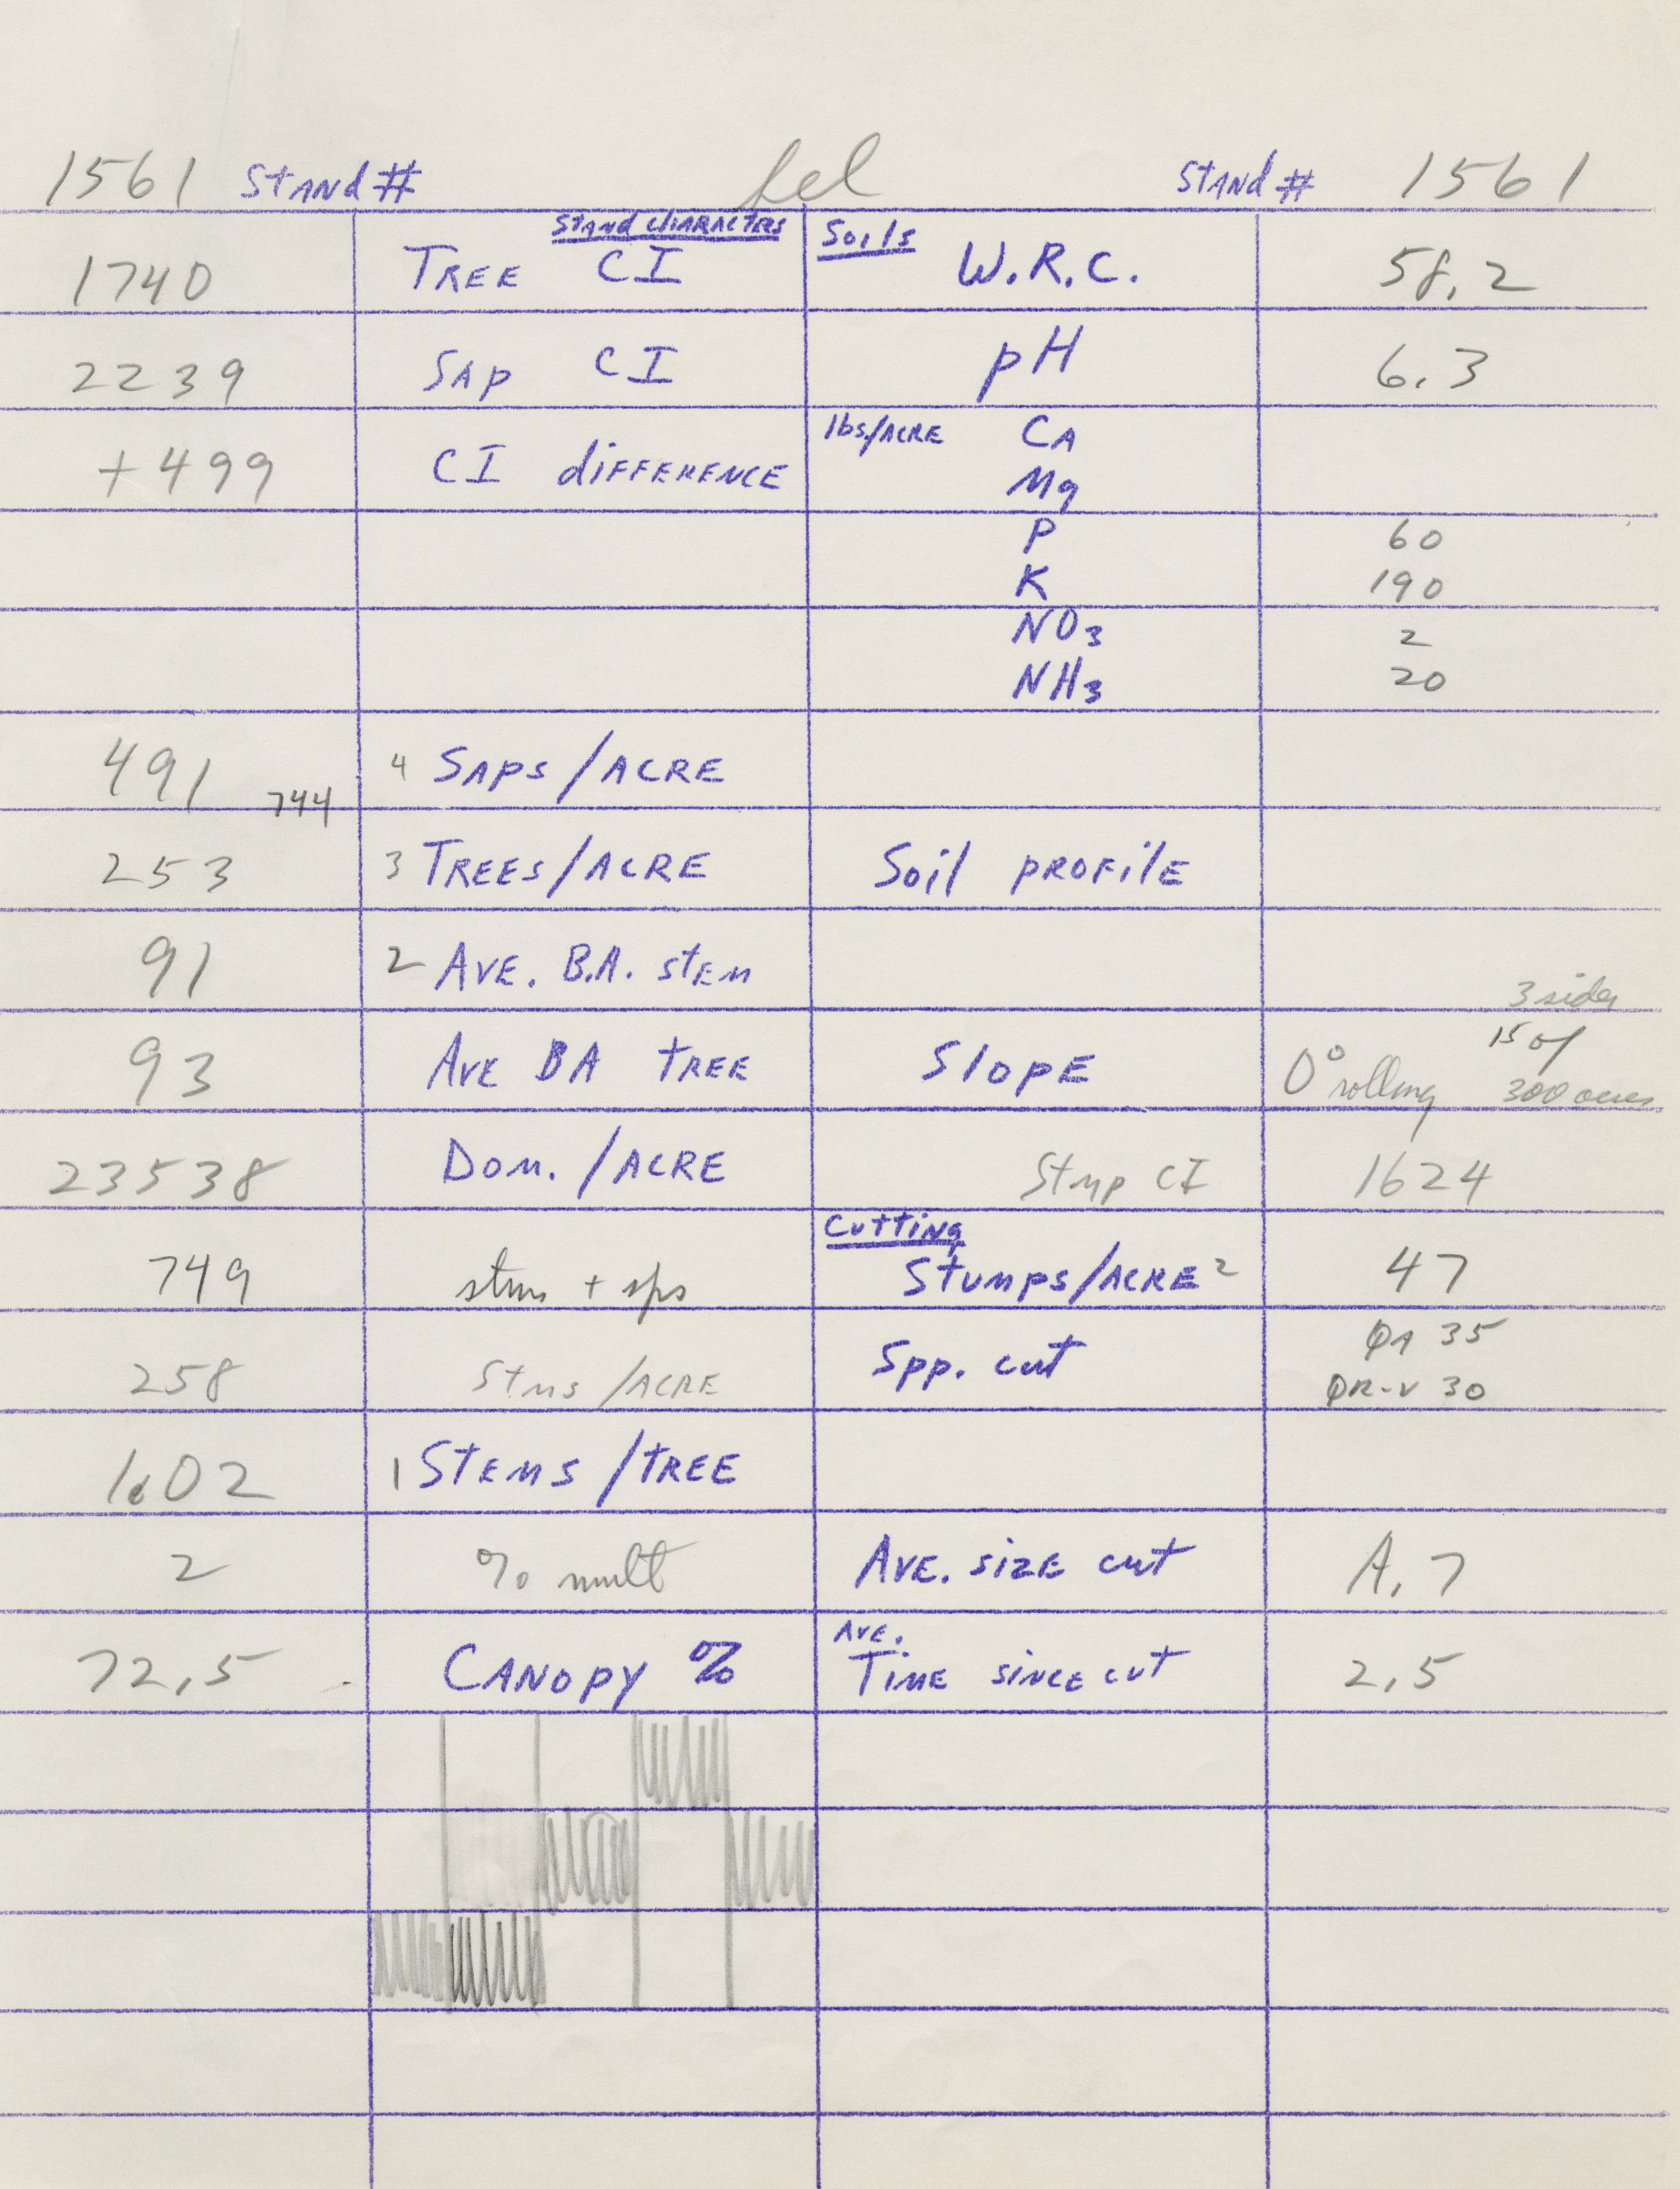 1561 Stand # fel Stand # 1561
Stand Characters Soils
1740 Tree CI W.R.C. 58.2
2239 Sap CI pH 6.3
+499 CI difference lbs/Acre Ca
Mg
P 60
K 190
NO3 2
NH3 20
491 744 4 Saps/Acre
253 3 Trees/Acre Soil profile
91 2 Ave. B.A. stem
3 sides
93 Ave BA tree Slope 0° rolling 15 of
300 acres
23538 Dom./Acre Stmp CI 1624
Cutting
749 stms + sps Stumps/Acre 2 47
258 Stms/Acre Spp. cut QA 35
QR-V 30
1.02 1 Stems/tree
2 % mult Ave. size cut A.7
72.5 Canopy % Ave.
Time since cut 2.5